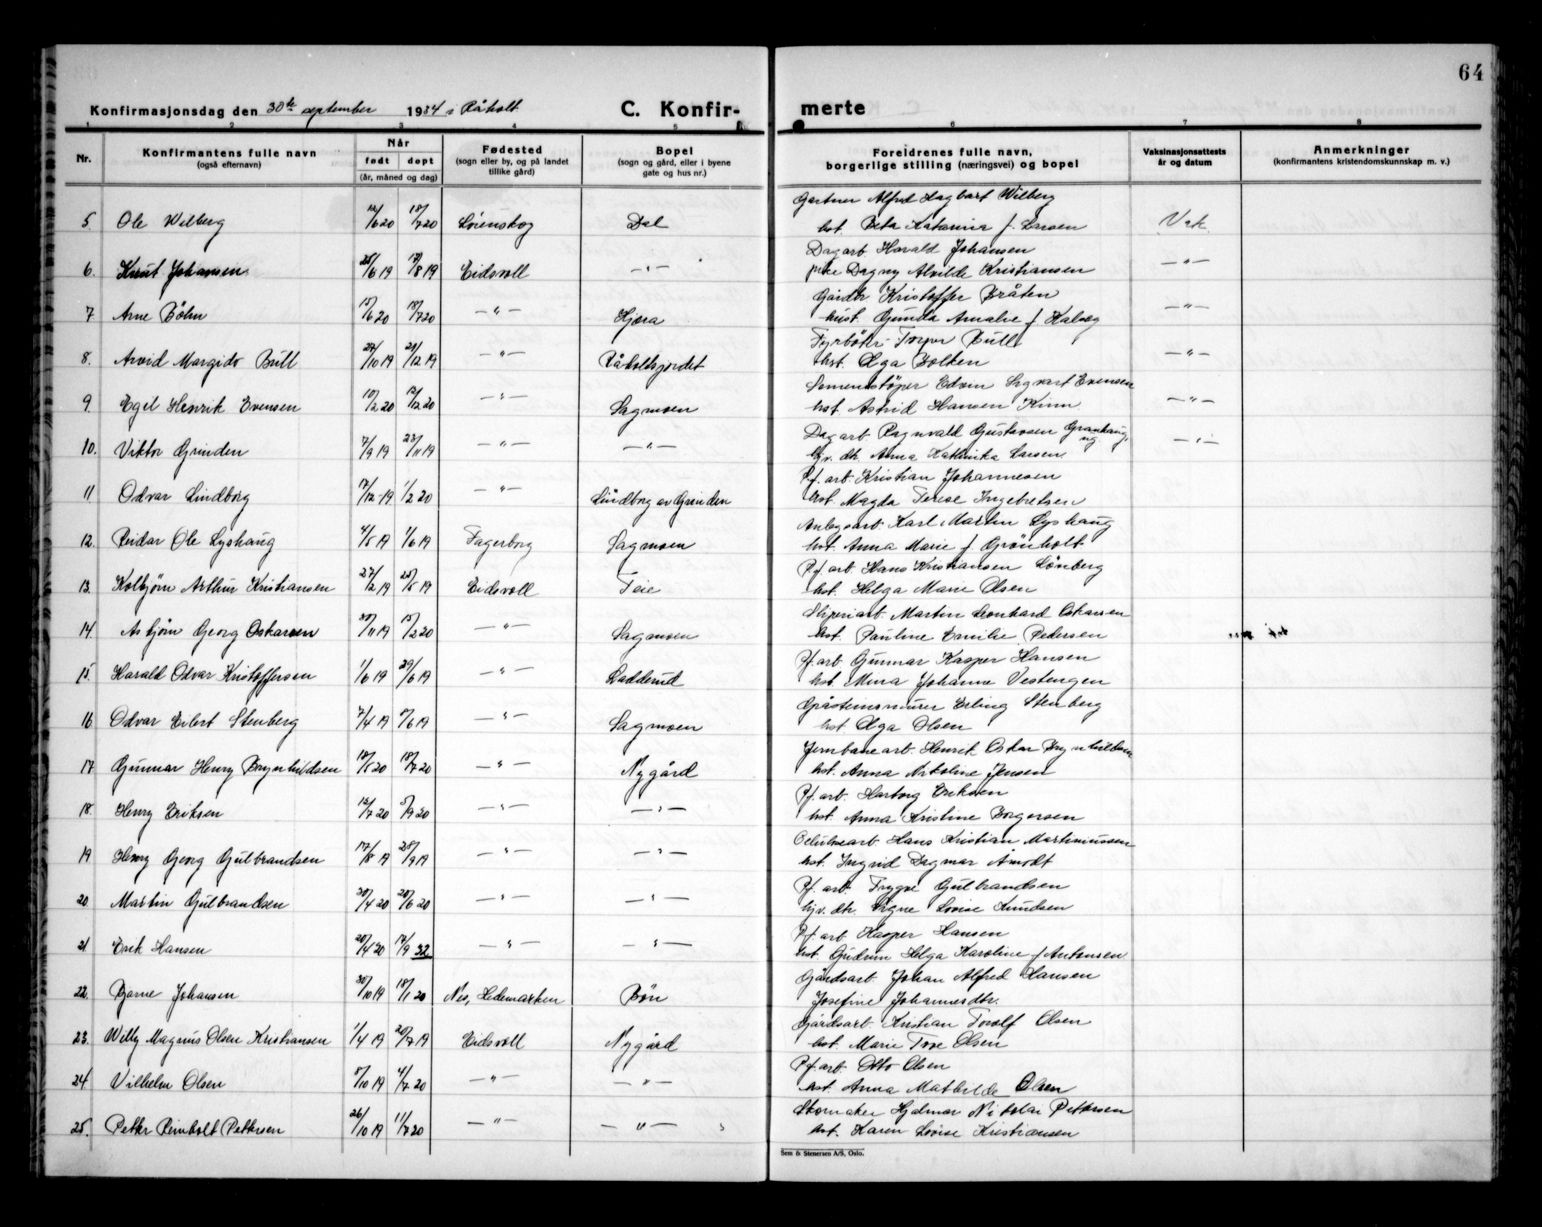 64
Konfirmasjonsdag den 30te september 1934 i Råholt C. Konfir- merte
1 2 3 4 5 6 7 8
Nr. Konfirmantens fulle navn (også efternavn) Når født døpt (år, måned og dag) Fødested (sogn eller by, og på landet tillike gård) Bopel (sogn og gård, eller i byene gate og hus nr.) Foreldrenes fulle navn, borgerlige stilling (næringsvei) og bopel Vaksinasjonsattests år og datum Anmerkninger (konfirmantens kristendomskunnskap m. v.)
Gartner Alfred Hagbart Wilberg
5 Ole Wilberg 12/6 20 18/7 20 Lørenskog Dal hst. Beta Katarina f. Larsen Vak.
Dagarb Harald Johansen
6. Knut Johansen 25/6 19 17/8 19 Eidsvoll -"- pike Dagny Alvilde Kristiansen -"-
Gårdbr Kristoffer Bråten
7 Arne Böhn 15/6 20 18/7 20 -"- Hjæra hust. Gunda Amalie f Halvæg -"-
Fyrbøter Torger Bull
8. Arvid Margido Bull 27/10 19 21/12 19 -"- Råholtsjordet hst. Olga Bolten -"-
Sementstøper Edvin Sigvart Evensen
9. Egel Henrik Evensen 10/2 20 12/12 20 -"- Sagmoen hst. Astrid Hansen Kinn -"-
Dagarb Ragnvald Gustavsen
10. Viktor Grinden 7/9 19 23/11 19 -"- -"- Anna Katinka Larsen -"-
Pf. arb Kristian Johannesen
11 Odvar Lindborg 17/12 19 1/2 20 -"- Lindborg av Grinden hst. Magda Terese Ingebretsen
Anlegsarb Karl Martin Lyshaug
12. Reidar Ole Lyshaug 4/5 19 1/6 19 Fagerborg Sagmoen hst. Anna Marie f Grønholt
Pf arb Hans Kristiansen Lønberg
13. Kolbjørn Arthur Kristiansen 27/2 19 25/5 19 Eidsvoll Teie hst. Helga Marie Olsen
Sliperiarb. Martin Leonhard Oskarsen
14. Asbjørn Georg Oskarsen 30/11 19 15/2 20 -"- Sagmoen hst. Pauline Emilie Pedersen
Pf. arb Gunnar Kasper Hansen
15. Harald Odvar Kristoffersen 1/6 19 29/6 19 -"- Ladderud hst. Mina Johanne Vestengen
Gråstensmurer Erling Stenberg
16 Odvar Erlert Stenberg 7/4 19 9/6 19 -"- Sagmoen hst Olga Olsen
Jernbanearb. Henrik Oskar Brynhildsen
17. Gunnar Henry Brynhildsen 18/5 20 18/7 20 -"- Nygård hst. Anna Nikoline Jensen
Pf. arb. Hartvig Eriksen
18. Henry Eriksen 12/7 20 5/9 20 -"- -"- hst. Anna Kristine Borgersen
Celulosearb Hans Kristian Martinussen
19 Henry Georg Gulbrandsen 17/8 19 28/9 19 -"- -"- hst. Ingrid Dagmar Åmodt
Pf. arb. Trygve Gulbrandsen
20 Martin Gulbrandsen 30/4 20 20/6 20 -"- -"- Signe Lovise Knudsen
Pf arb Kasper Hansen
21 Erik Hansen 20/4 20 14/9 32 -"- -"- hst Gudrun Helga Karoline f Antonsen
Gårdsarb Johan Alfred Hansen
22. Bjarne Johansen 30/10 19 18/1 20 Nes, Hedemarken Bön Josefine Johannesdtr.
Gårdsarb Kristian Torolf Olsen
23. Willy Magnus Olsen Kristiansen 1/4 19 20/7 19 Eidsvoll Nygård hst. Marie Tove Olsen
Pf. arb Otto Olsen
24. Vilhelm Olsen 5/10 19 4/7 20 -"- -"- hst. Anna Mathilde Olsen
Skomaker Hjalmar Nikolai Pettersen
25. Petter Reinholt Pettersen 26/10 19 11/7 20 -"- -"- hst. Karen Lovise Kristiansen
Sem & Stenersen A/S, Oslo.